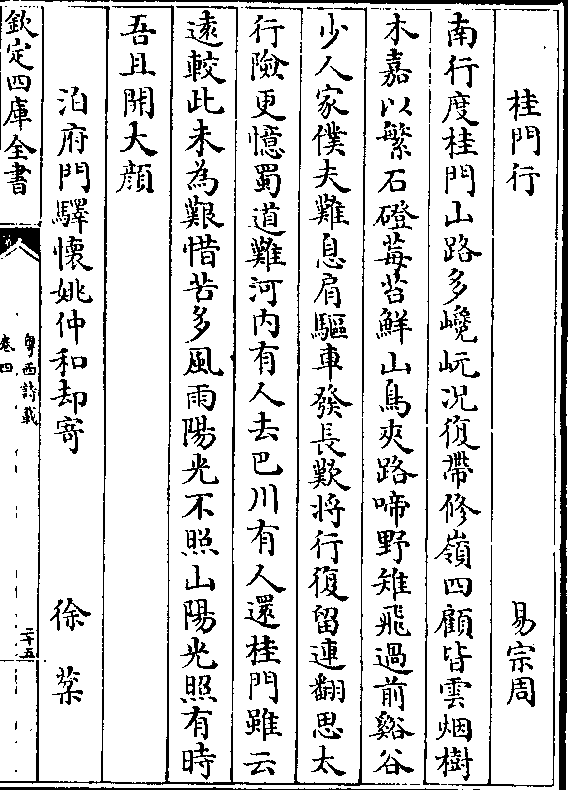 桂門行　易宗周
南行度桂門山路多巉岏况復帶修嶺四顧皆雲烟樹
木嘉以繁石磴莓苔鮮山鳥夾路啼野雉飛過前谿谷
少人家僕夫難息肩驅車發長歎將行復留連翻思太
行險更憶蜀道難河内有人去巴川有人還桂門雖云
逺較此未為艱惜苦多風雨陽光不照山陽光照有時
吾且開大顔
泊府門驛懷姚仲和却寄　徐棻
欽定四庫全書
粤西詩載
卷四
二十五